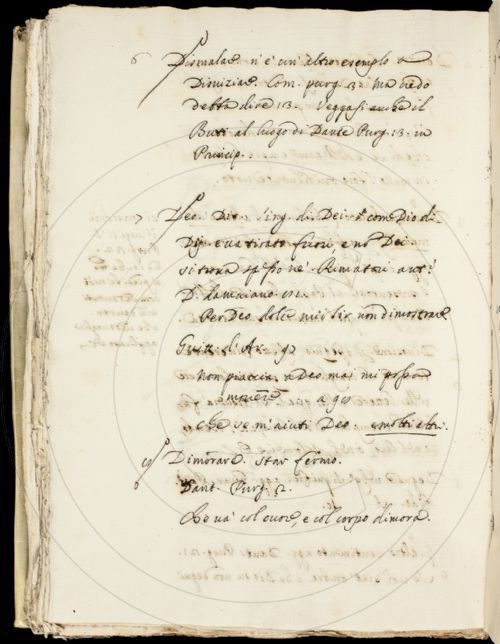 6 Dismalare. n'è un'altro esemplo
Divizia. Com. purg. 3. ma credo
debba dire 13. Veggasi anche il
Buti al luogo di Dante Purg. 13. in
Princip.
Deo. Dio. sing. di Dei come Dio di
Dij e va tirato fuori, e no' Dei
si trova spesso ne' Rimatori ant:
D.
Per Deo dolce mio sir non dimostrare
Guitt. d'Ar. 92
non piaccia a Deo mai mi possa
movere a 90
che se m'aiuti Deo. e molti altri.
Dimorare. star fermo.
Dant. Purg. 2.
Che va col cuore, e col corpo dimora.